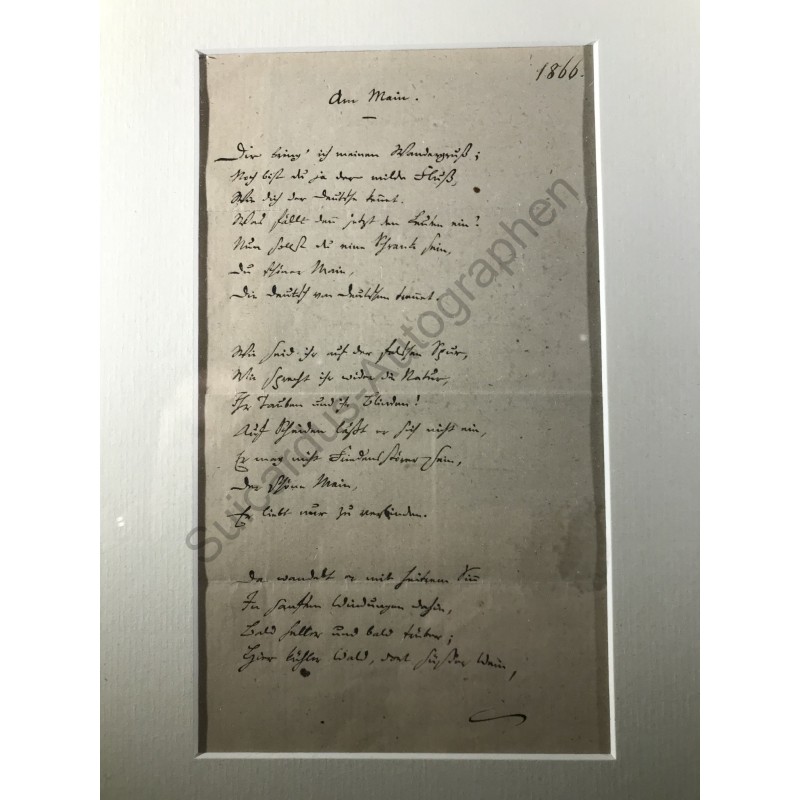 1866.
Am Main.
Dir bring' ich meinen Wandergruß;
Noch bist du ja der milde Fluß,
Wie dich der Deutsche kennt.
Was fällt denn jetzt den Leuten ein?
Nun sollst du eine Schranke sein,
Du schöner Main,
Die Deutsch von Deutschem trennt.
Wie seid ihr auf der falschen Spur,
Wie sprecht ihr wider die Natur,
Ihr Tauben und ihr Blinden!
Auf Scheiden läßt er sich nicht ein,
Er mag nicht Friedensstörer sein,
Der schöne Main,
Er liebt nur zu verbinden.
Da wandelt er mit heitrem Sinn
In sanften Windungen dahin,
Bald heller und bald trüber;
Hier kühler Wald, dort süßer Wein,
Suicardus-Autographen